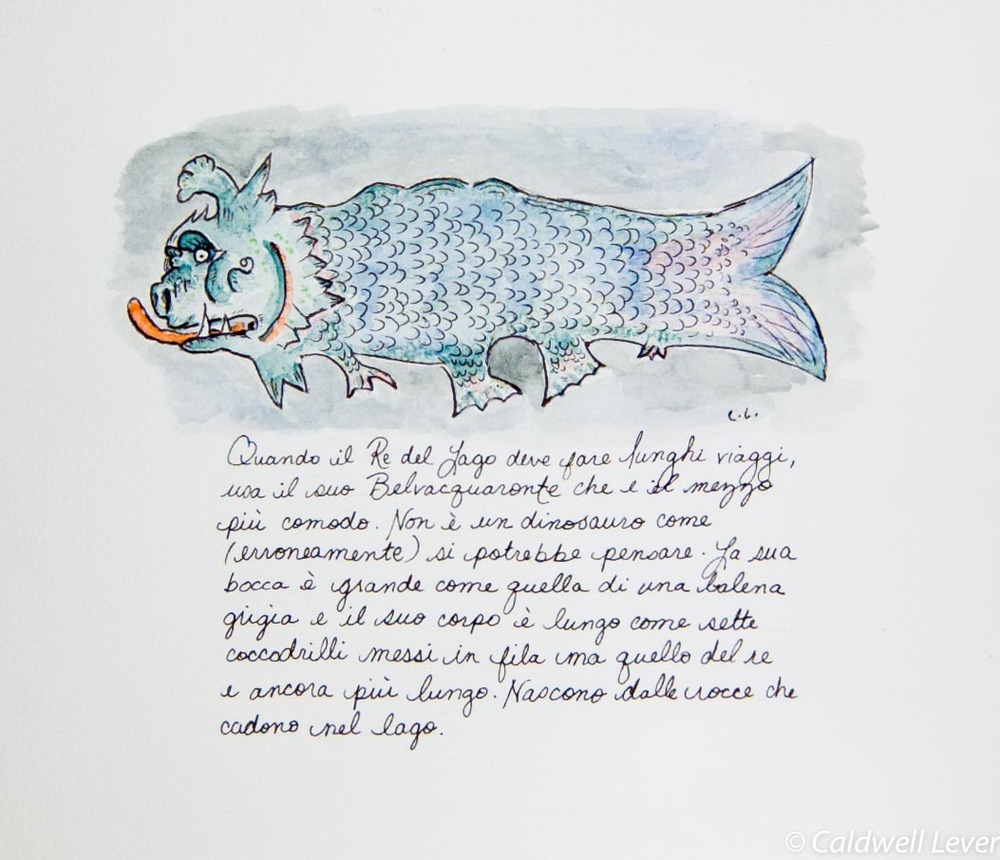 c.L.
Quando il Re del Lago deve fare lunghi viaggi,
usa il suo Belvacquaronte che e il mezzo
più comodo. Non è un dinosauro come
(erroneamente) si potrebbe pensare. La sua
bocca è grande come quella di una balena
grigia e il suo corpo è lungo come sette
coccodrilli messi in fila ma quello del re
e ancora più lungo. Nascono dalle rocce che
cadono nel lago.
© Caldwell Lever